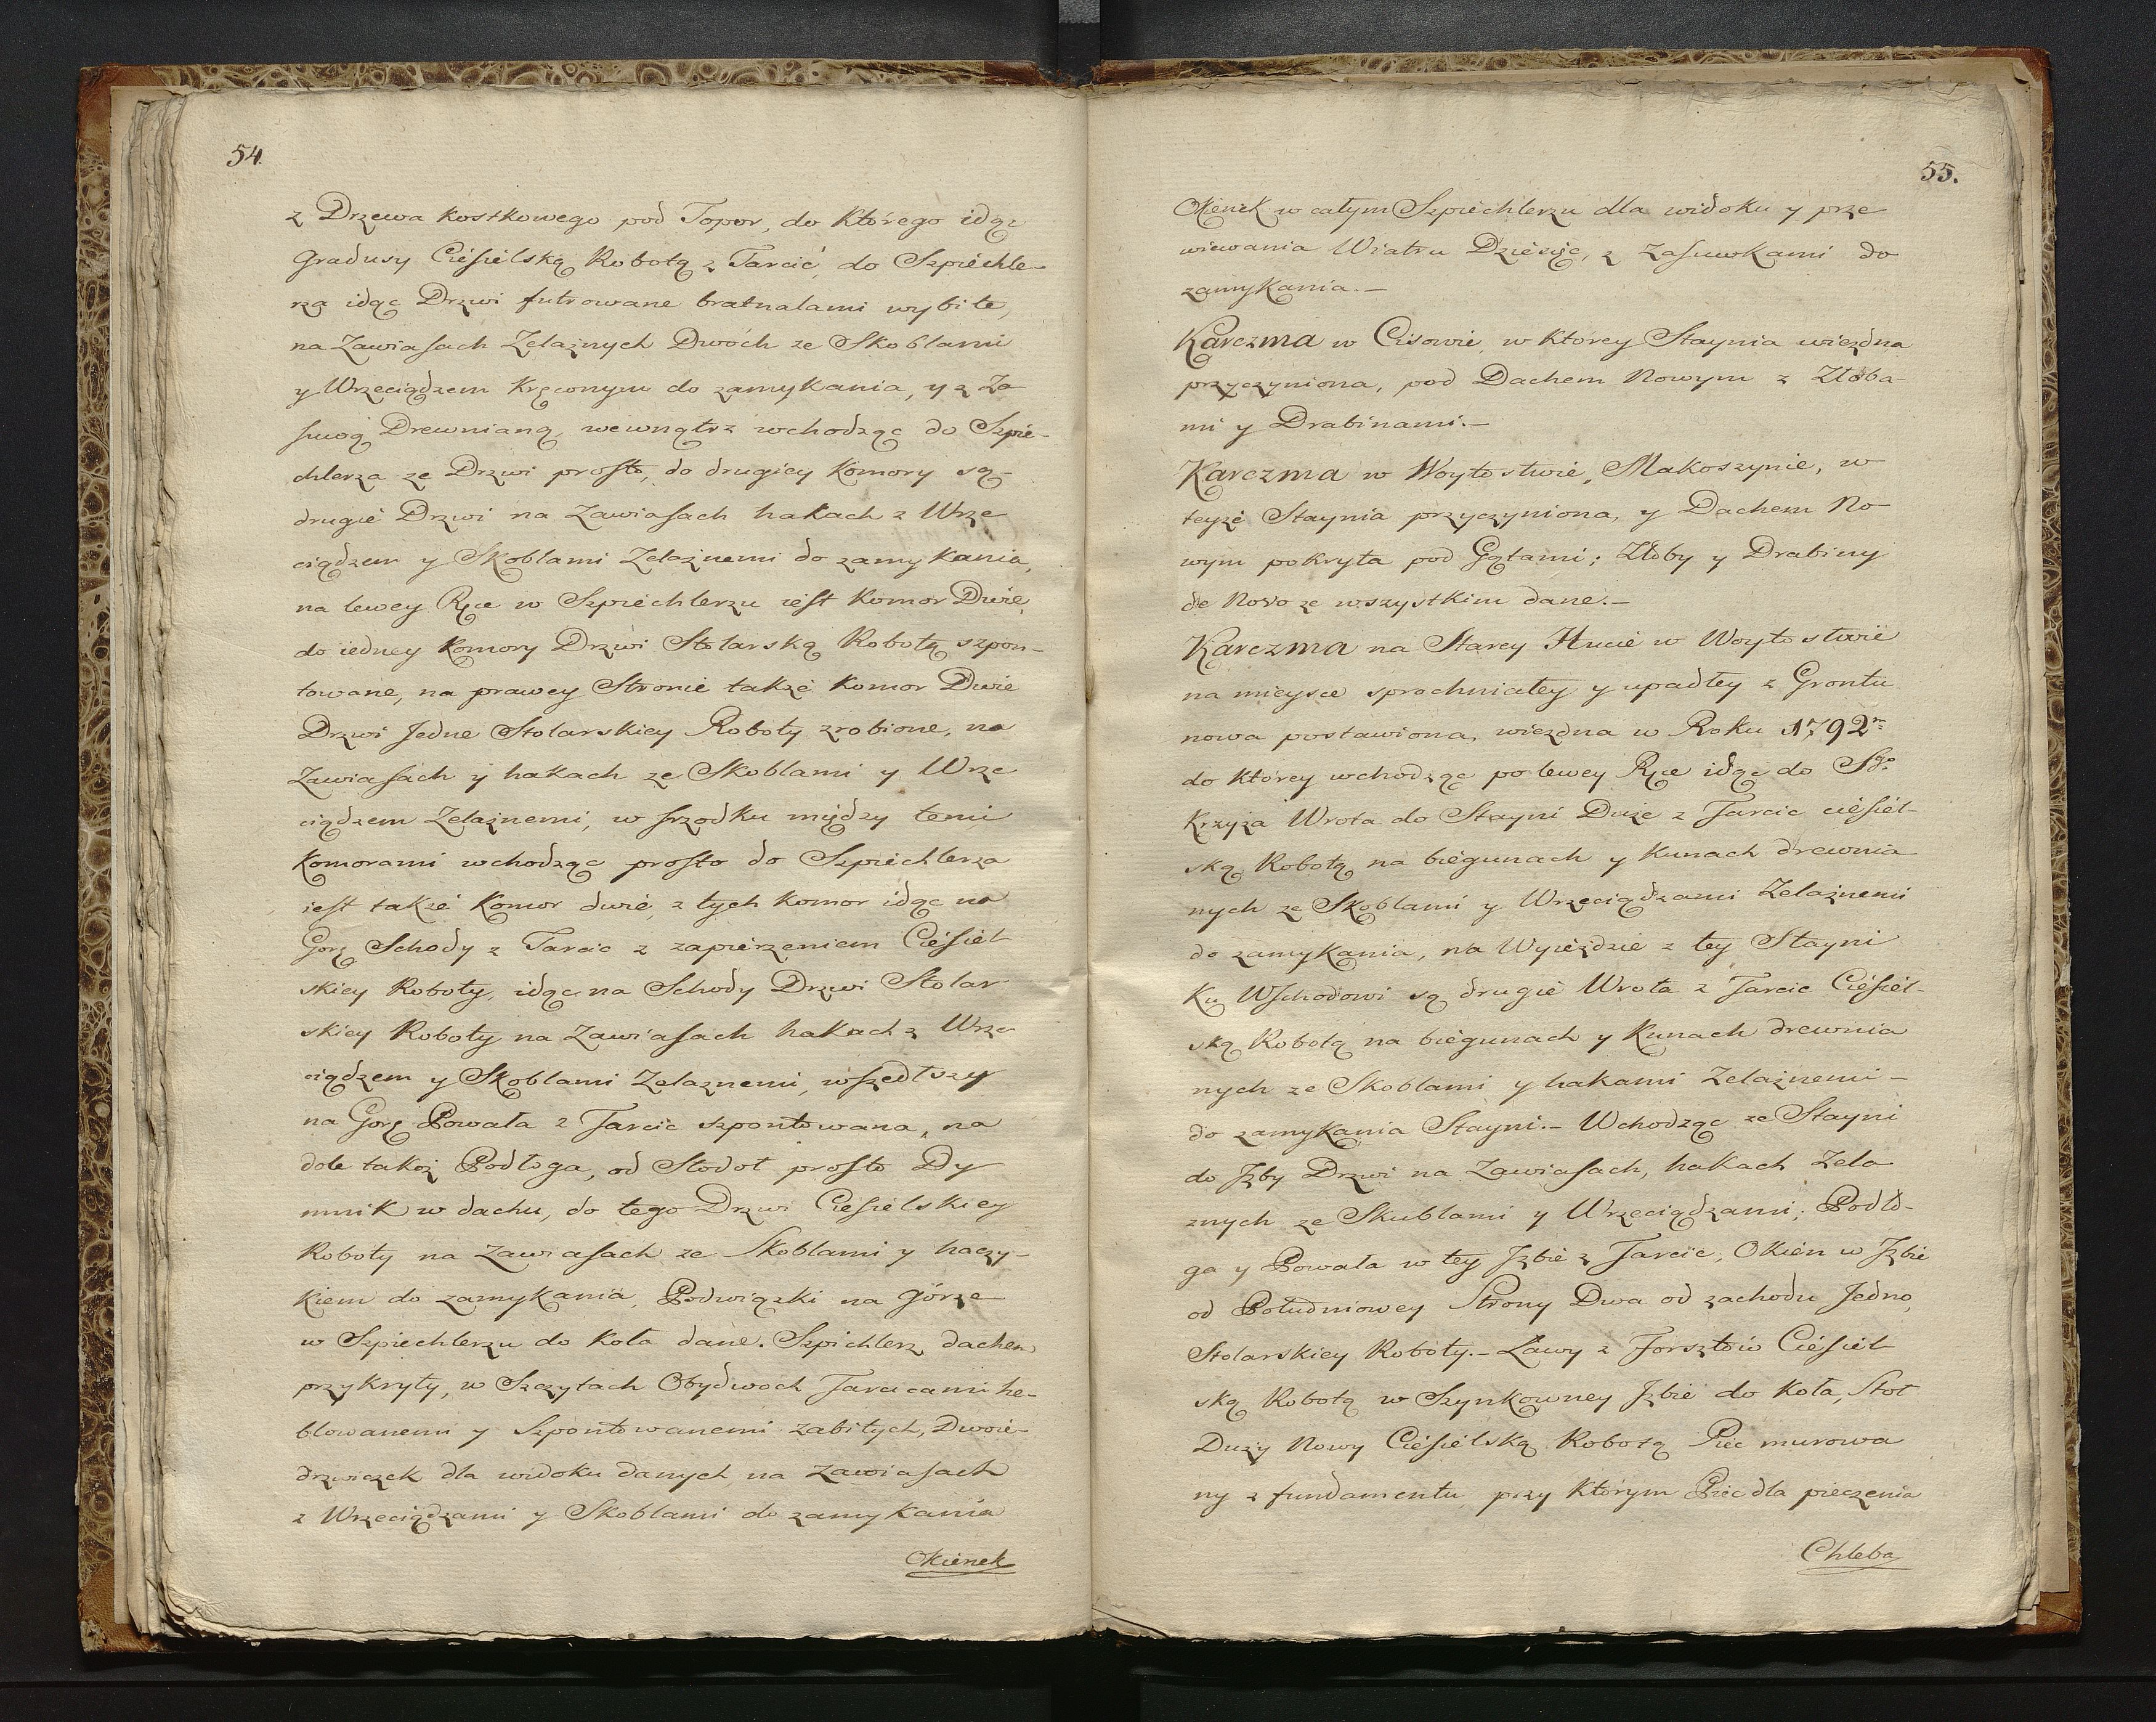 54.
z Drzewa kostkowego pod Topor, do którego idąc
Gradusy Ciesielską Robotą z Tarcic, do Szpiechle-
rza idąc Drzwi futrowane bratnalami wybite,
na Zawiasach Zelaznych Dwóch ze Skoblami
y Wrzeciądzem Kręconym do zamykania, y z Za
suwą Drewnianą wewnątrz wchodząc do Szpie-
chlerza ze Drzwi prosto, do drugiey Komory są-
drugie Drzwi na Zawiasach hakach z Wrze
ciądzem y Skoblami Zelaznemi do zamykania,
na lewey Ręce w Szpiechlerzu iest Komor Dwie,
do iedney Komory Drzwi Stolarską Robotą szpon-
towane, na prawey Stronie także Komor Dwie
Drzwi Jedne Stolarskiey Roboty zrobione, na
Zawiasach y hakach ze Skoblami y Wrze
ciądzem Zelaznemi, w srzodku między temi
Komorami wchodząc prosto do Szpiechlerza
iest także Komor dwie, z tych Komor idąc na
Gorę Schody z Tarcic z zapierzeniem Ciesiel
skiey Roboty, idąc na Schody Drzwi Stolar
skiey Roboty na Zawiasach hakach z Wrze
ciądzem y Skoblami Zelaznemi, wszedłszy
na Gorę Powała z Tarcic szpontowana, na
dole takoż Podłoga, od Stodoł prosto Dy
mnik w dachu, do tego Drzwi Ciesielskiey
Roboty na Zawiasach ze Skoblami y haczy-
kiem do zamykania, Podwiązki na górze
w Szpiechlerzu do Koła dane. Szpichlerz dachem
przykryty, w Szczytach Obydwoch Tarcicami he-
blowanemi y Szpontowanemi zabitych, Dwoie-
drzwiczek dla widoku danych na Zawiasach
z Wrzeciądzami y Skoblami do zamykania
Okienek
55.
Okienek w całym Szpiechlerzu dla widoku y prze
wiewania Wiatru Dziesięć, z Zasuwkami do
zamykania.-
Karczma w Cisowie, w którey Staynia wiezdna
przyczyniona, pod Dachem Nowym z Złoba-
mi y Drabinami.-
Karczma w Woytostwie, Makoszynie, w
teyże Staynia przyczyniona, y Dachem No
wym pokryta pod Gątami; Złoby y Drabiny
de Novo ze wszystkim dane.-
Karczma na Starey Hucie w Woytostwie
na mieysce sprochniałey y upadłey z Grontu
nowa postawiona, wiezdna w Roku 1792m
do którey wchodząc po lewey Ręce idąc do Sgo
Krzyża Wrota do Stayni Duże z Tarcic ciesiel-
ską Robotą na biegunach y Kunach drewnia
nych ze Skoblami y Wrzeciądzami Zelaznemi
do zamykania, na Wyieździe z tey Stayni
Ku Wschodowi są drugie Wrota z Tarcic Ciesiel-
ską Robotą na biegunach y Kunach drewnia
nych ze Skoblami y hakami Zelaznemi-
do zamykania Stayni.- Wchodząc ze Stayni
do Jzby Drzwi na Zawiasach, hakach Zela
znych ze Skublami y Wrzeciądzami; Podło-
ga y Powała w tey Jzbie z Tarcic, Okien w Jzbie
od Południowey Strony Dwa od zachodu Jedno,
Stolarskiey Roboty.- Ławy z Forsztów Ciesiel
ską Robotą w Szynkowney Jzbie do Koła, Stoł
Duży Nowy Ciesielską Robotą Piec murowa
ny z fundamentu, przy którym Piec dla pieczenia
Chleba